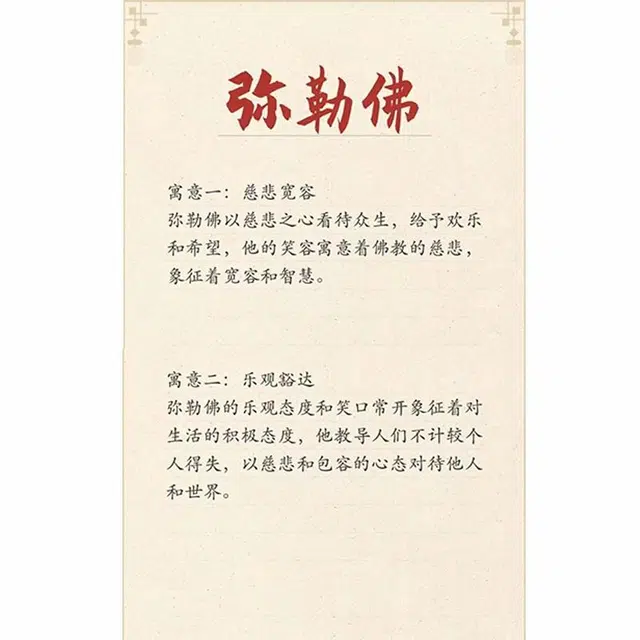 弥勒佛
寓意一：慈悲宽容
弥勒佛以慈悲之心看待众生，给予欢乐
和希望，他的笑容寓意着佛教的慈悲，
象征着宽容和智慧。
寓意二：乐观豁达
弥勒佛的乐观态度和笑口常开象征着对
生活的积极态度，他教导人们不计较个
人得失，以慈悲和包容的心态对待他人
和世界。